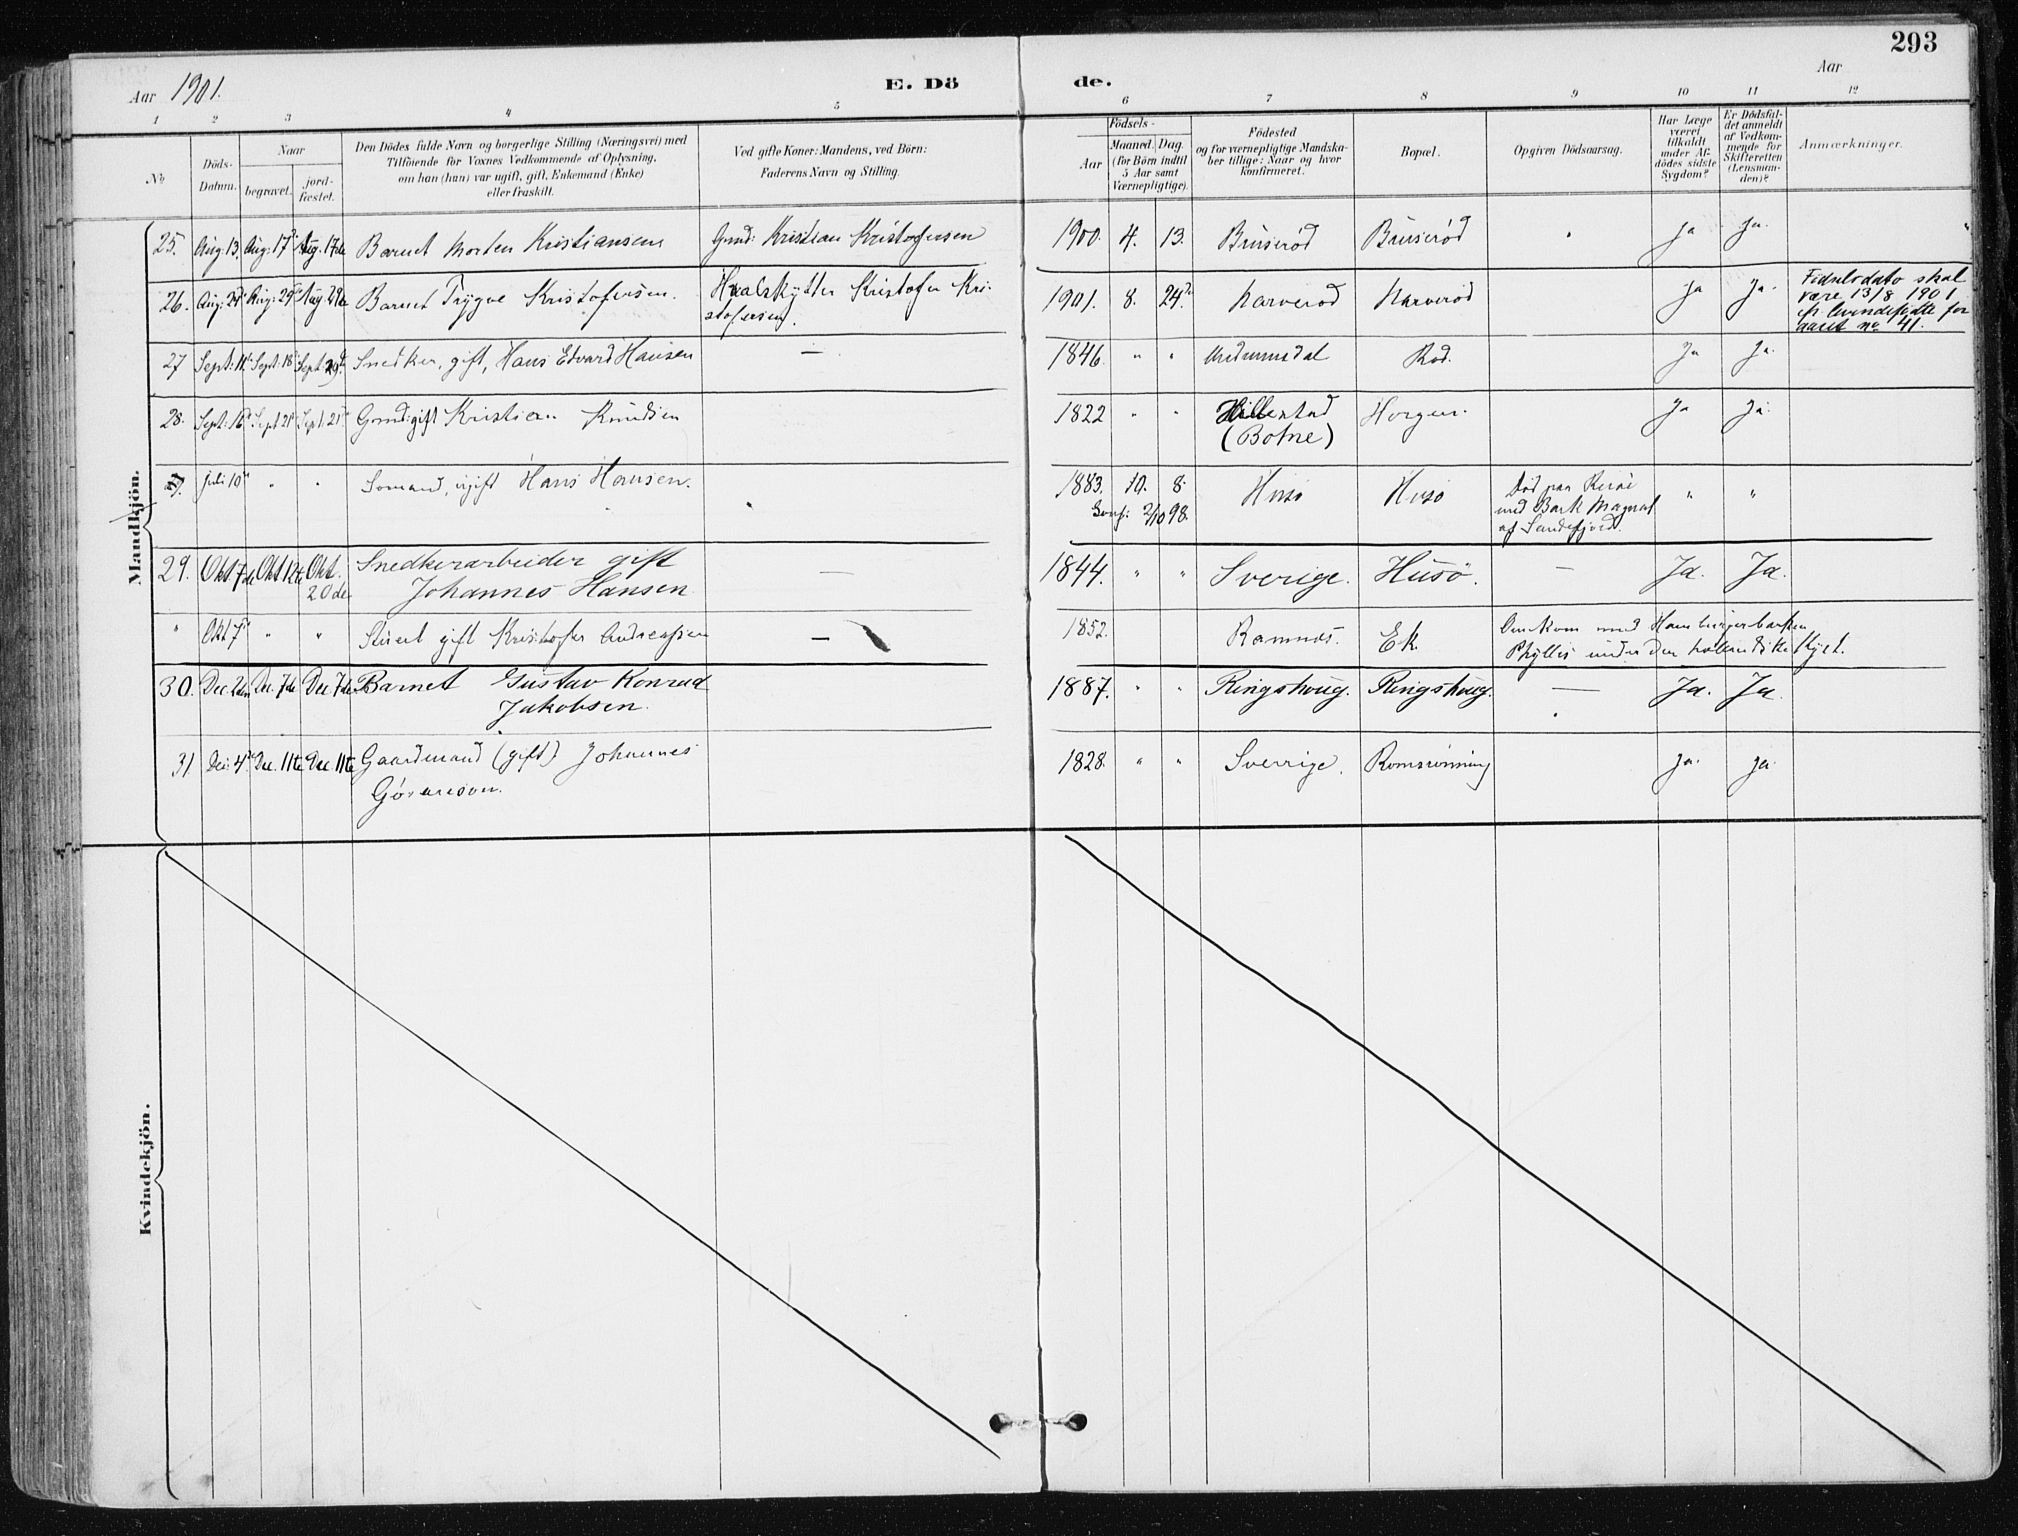 293
Aar 1901.
E. Dö de.
Aar
1 2 3 4 5 6 7 8 9 10 11 12
No
Döds-Datum.
Naar
begravet.
jord-fæstet.
Den Dödes fulde Navn og borgerlige Stilling (Næringsvei) med
Tilföiende for Voxnes Vedkommende af Oplysning,
om han (hun) var ugift, gift, Enkemand (Enke)
eller fraskilt.
Ved gifte Koner: Mandens, ved Börn:
Faderens Navn og Stilling.
Födsels-
Aar
Maaned. Dag.
(for Börn indtil
5 Aar samt
Værnepligtige).
Födested
og for værnepligtige Mandska-
ber tillige: Naar og hvor
konfirmeret.
Bopæl.
Opgiven Dödsaarsag.
Har Læge
været
tilkaldt
under Af-
dödes sidste
Sygdom?
Er Dödsfal-
det anmeldt
af Vedkom-
mende for
Skifteretten
(Lensman-
den)?
Anmærkninger.
Mandkjön.
25. Aug. 13. Aug: 17 Aug. 17de Barnet Morten Kristiansen Gmd: Kristian Kristofersen 1900. 4. 13. Bruserød Bruserød Ja Ja.
26. Aug: Aug: 29 Aug 29de Barnet Trygve Kristofersen. Hvalskytter Kristofer Kri-
stofersen. 1901. 8. 24 Narverød Narverød Ja Ja. Fødselsdato skal
være 13/8 1901
for
aaret no 41.
27 Sept: 11 Sept: 18 Sept: 29 Snedker, gift, Hans Edvard Hansen — 1846. " " Rød. Ja Ja.
28. Sept: 16 Sept 21 Sept: 21 Gmd: gift Kristian Knudsen 1822 " " Hillestad
(Botne) Horgen. Ja Ja.
Juli 10 " " Sømand, ugift Hans Hansen. 1883. 10. 8.
Conf: 2/10 98. Husø Husø Død paa Reise
med Bark Magnat
af Sandefjord. " "
29. Okt 7de Okt 12te Okt.
20de Snedkerarbeider gift
Johannes Hansen — 1844. " " Sverige. Husö. — Ja. Ja.
" Okt 7 " " Stuert gift Kristofer Andreassen — 1852. Ramnes. Ek. Omkom med Hamburgerbarken
Phyllis under den hollandske Kyst.
30. Dec. 2den Dec. 7de Dec 7de Barnet Gustav Konrad
Jakobsen. 1887. " " Ringshoug. Ringshoug. — Ja. Ja.
31 Dec: 4 Dec. 11te Dec. 11te Gaardmand (gift) Johannes
1828. " " Sverrige. Romsrønning Ja. Ja.
Kvindekjön.